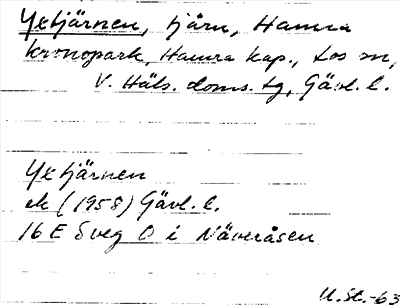 Yxtjärnen, tjärn, Hamra
kronopark, Hamra kap., Los sn,
V. Häls. doms. tg, Gävl. l.
Yxtjärnen
ek (1958) Gävl. l.
16 E Sveg O i Näveråsen
U.St.-63